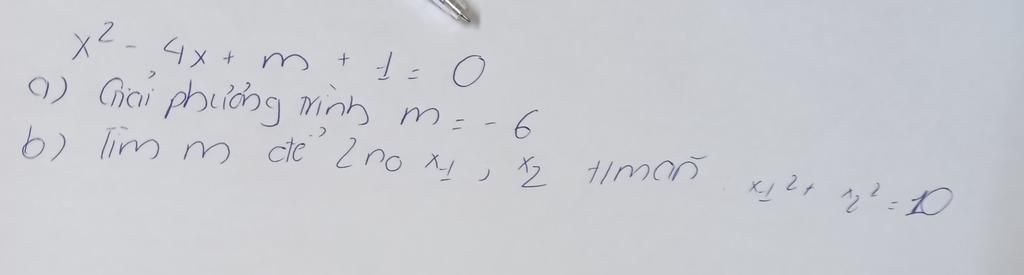 x² - 4x + m + 1 = 0
a) Giải phương trình m = - 6
b) Tìm m để 2 no x₁, x₂ t/mãn x₁² + x₂² = 10